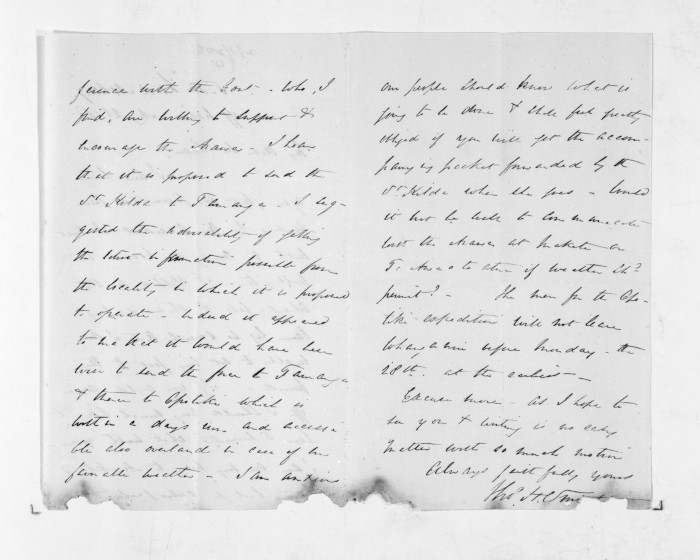 ference with the Govt - who, I
find, are willing to support &
encourage the Arawa - I hear
that it is proposed to send the
St Kilda to Tauranga - I sug-
gested the advisability of getting
the latest information possible from
the locality in which it is proposed
to operate - indeed it appeared
to me that it would have been
wise to send the force to Tauranga
& thence to Opotiki which is
within a days run and accessi-
ble also overland in case of un
favorable weather - I am anxious
our people should know what is
going to be done & shall feel greatly
obliged if you will get the accom-
panying packet forwarded by the
St Kilda when she goes - Would
it not be well to communicate
with the Arawa at Maketu or
Te Awa o te atua if weather shd
permit? - The men for the Opo-
tiki expedition will not leave
Whanganui before Monday - the
28th. at the earliest -
Excuse more - as I hope to
see you & writing is no easy
matter with so much motion
Always faithfully yours
Thos. H. Smith